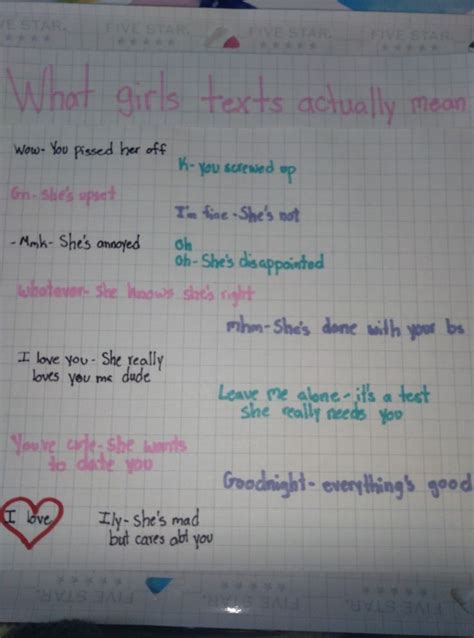 VE STAR.
FIVE STAR.
FIVE STAR.
FIVE STAR.
What girls texts actually mean
Wow- You pissed her off
K- you screwed up
Gn- She's upset
I'm fine -She's not
-Mmk- She's annoyed
Oh
Oh- She's disappointed
Whatever- She knows she's right
mhm- She's done with your bs
I love you- She really
loves you mc dude
Leave me alone- it's a test
she really needs you
You're cute- She wants
to date you
Goodnight- everything's good
I love
Ily- She's mad
but cares abt you
FIVE STAR.
FIVE STAR.
FIVE
FIVE STAR.